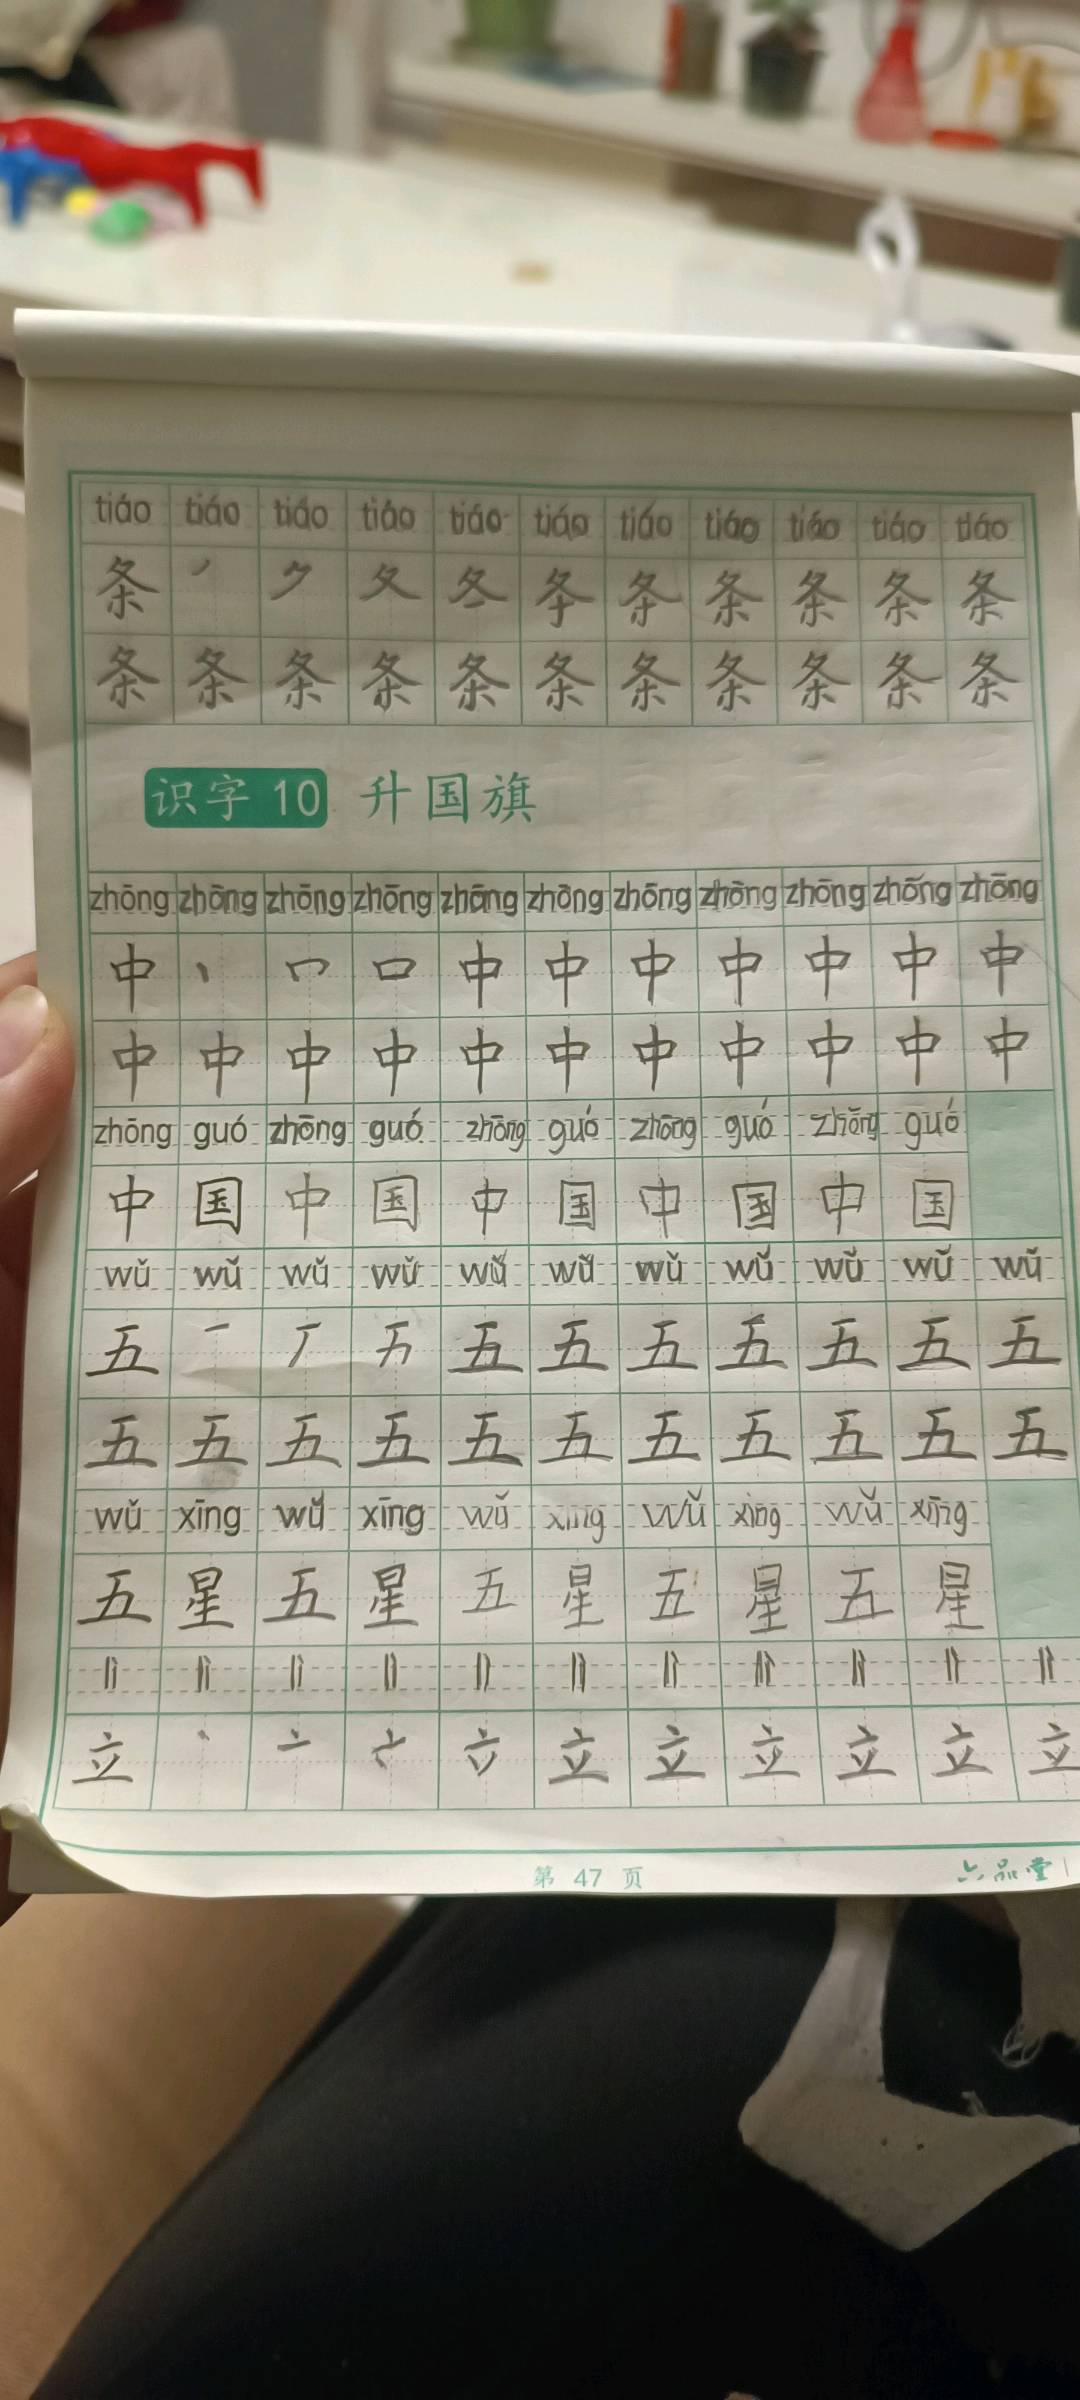 tiáo tiáo tiáo tiáo tiáo tiáo tiáo tiáo tiáo tiáo tiáo
条 丿 ク 夂 条 条 条 条 条 条
条 条 条 条 条 条 条 条 条 条 条
识字 10 升国旗
zhōng zhōng zhōng zhōng zhōng zhōng zhōng zhōng zhōng zhōng zhōng
中 丨 口 中 中 中 中 中 中 中
中 中 中 中 中 中 中 中 中 中 中
zhōng guó zhōng guó zhōng guó zhōng guó zhōng guó
中 国 中 国 中 国 中 国 中 国
wǔ wǔ wǔ wǔ wǔ wǔ wǔ wǔ wǔ wǔ wǔ
五 一 丆 五 五 五 五 五 五 五
五 五 五 五 五 五 五 五 五 五 五
wǔ xīng wǔ xīng wǔ xīng wǔ xīng wǔ xīng
五 星 五 星 五 星 五 星 五 星
立 丶 亠 立 立 立 立 立 立
第 47 页 六品堂